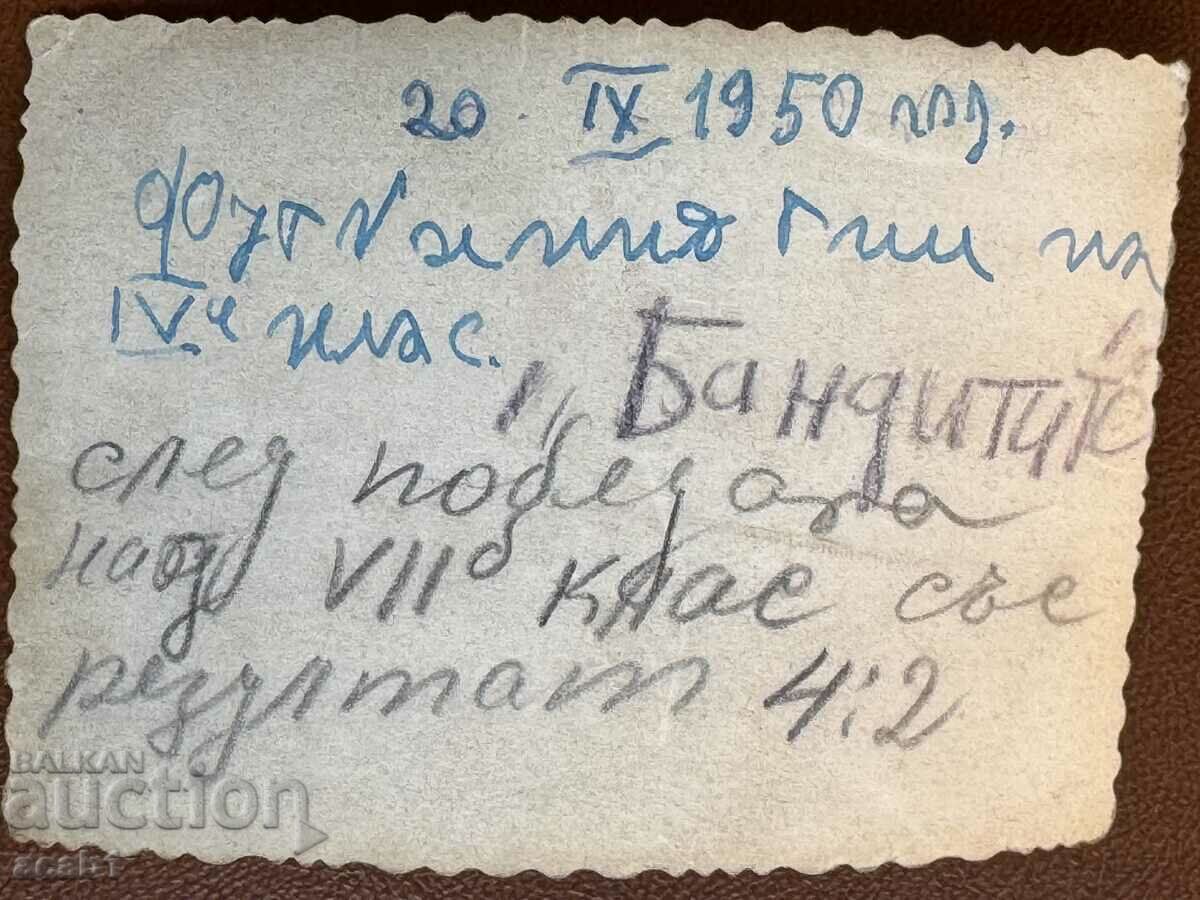 20 IX 1950 год.
футболния тим на
IVч клас.
"Бандитите"
след победата
над VIIб клас със
резултат 4:2
BALKAN
auction
acabt